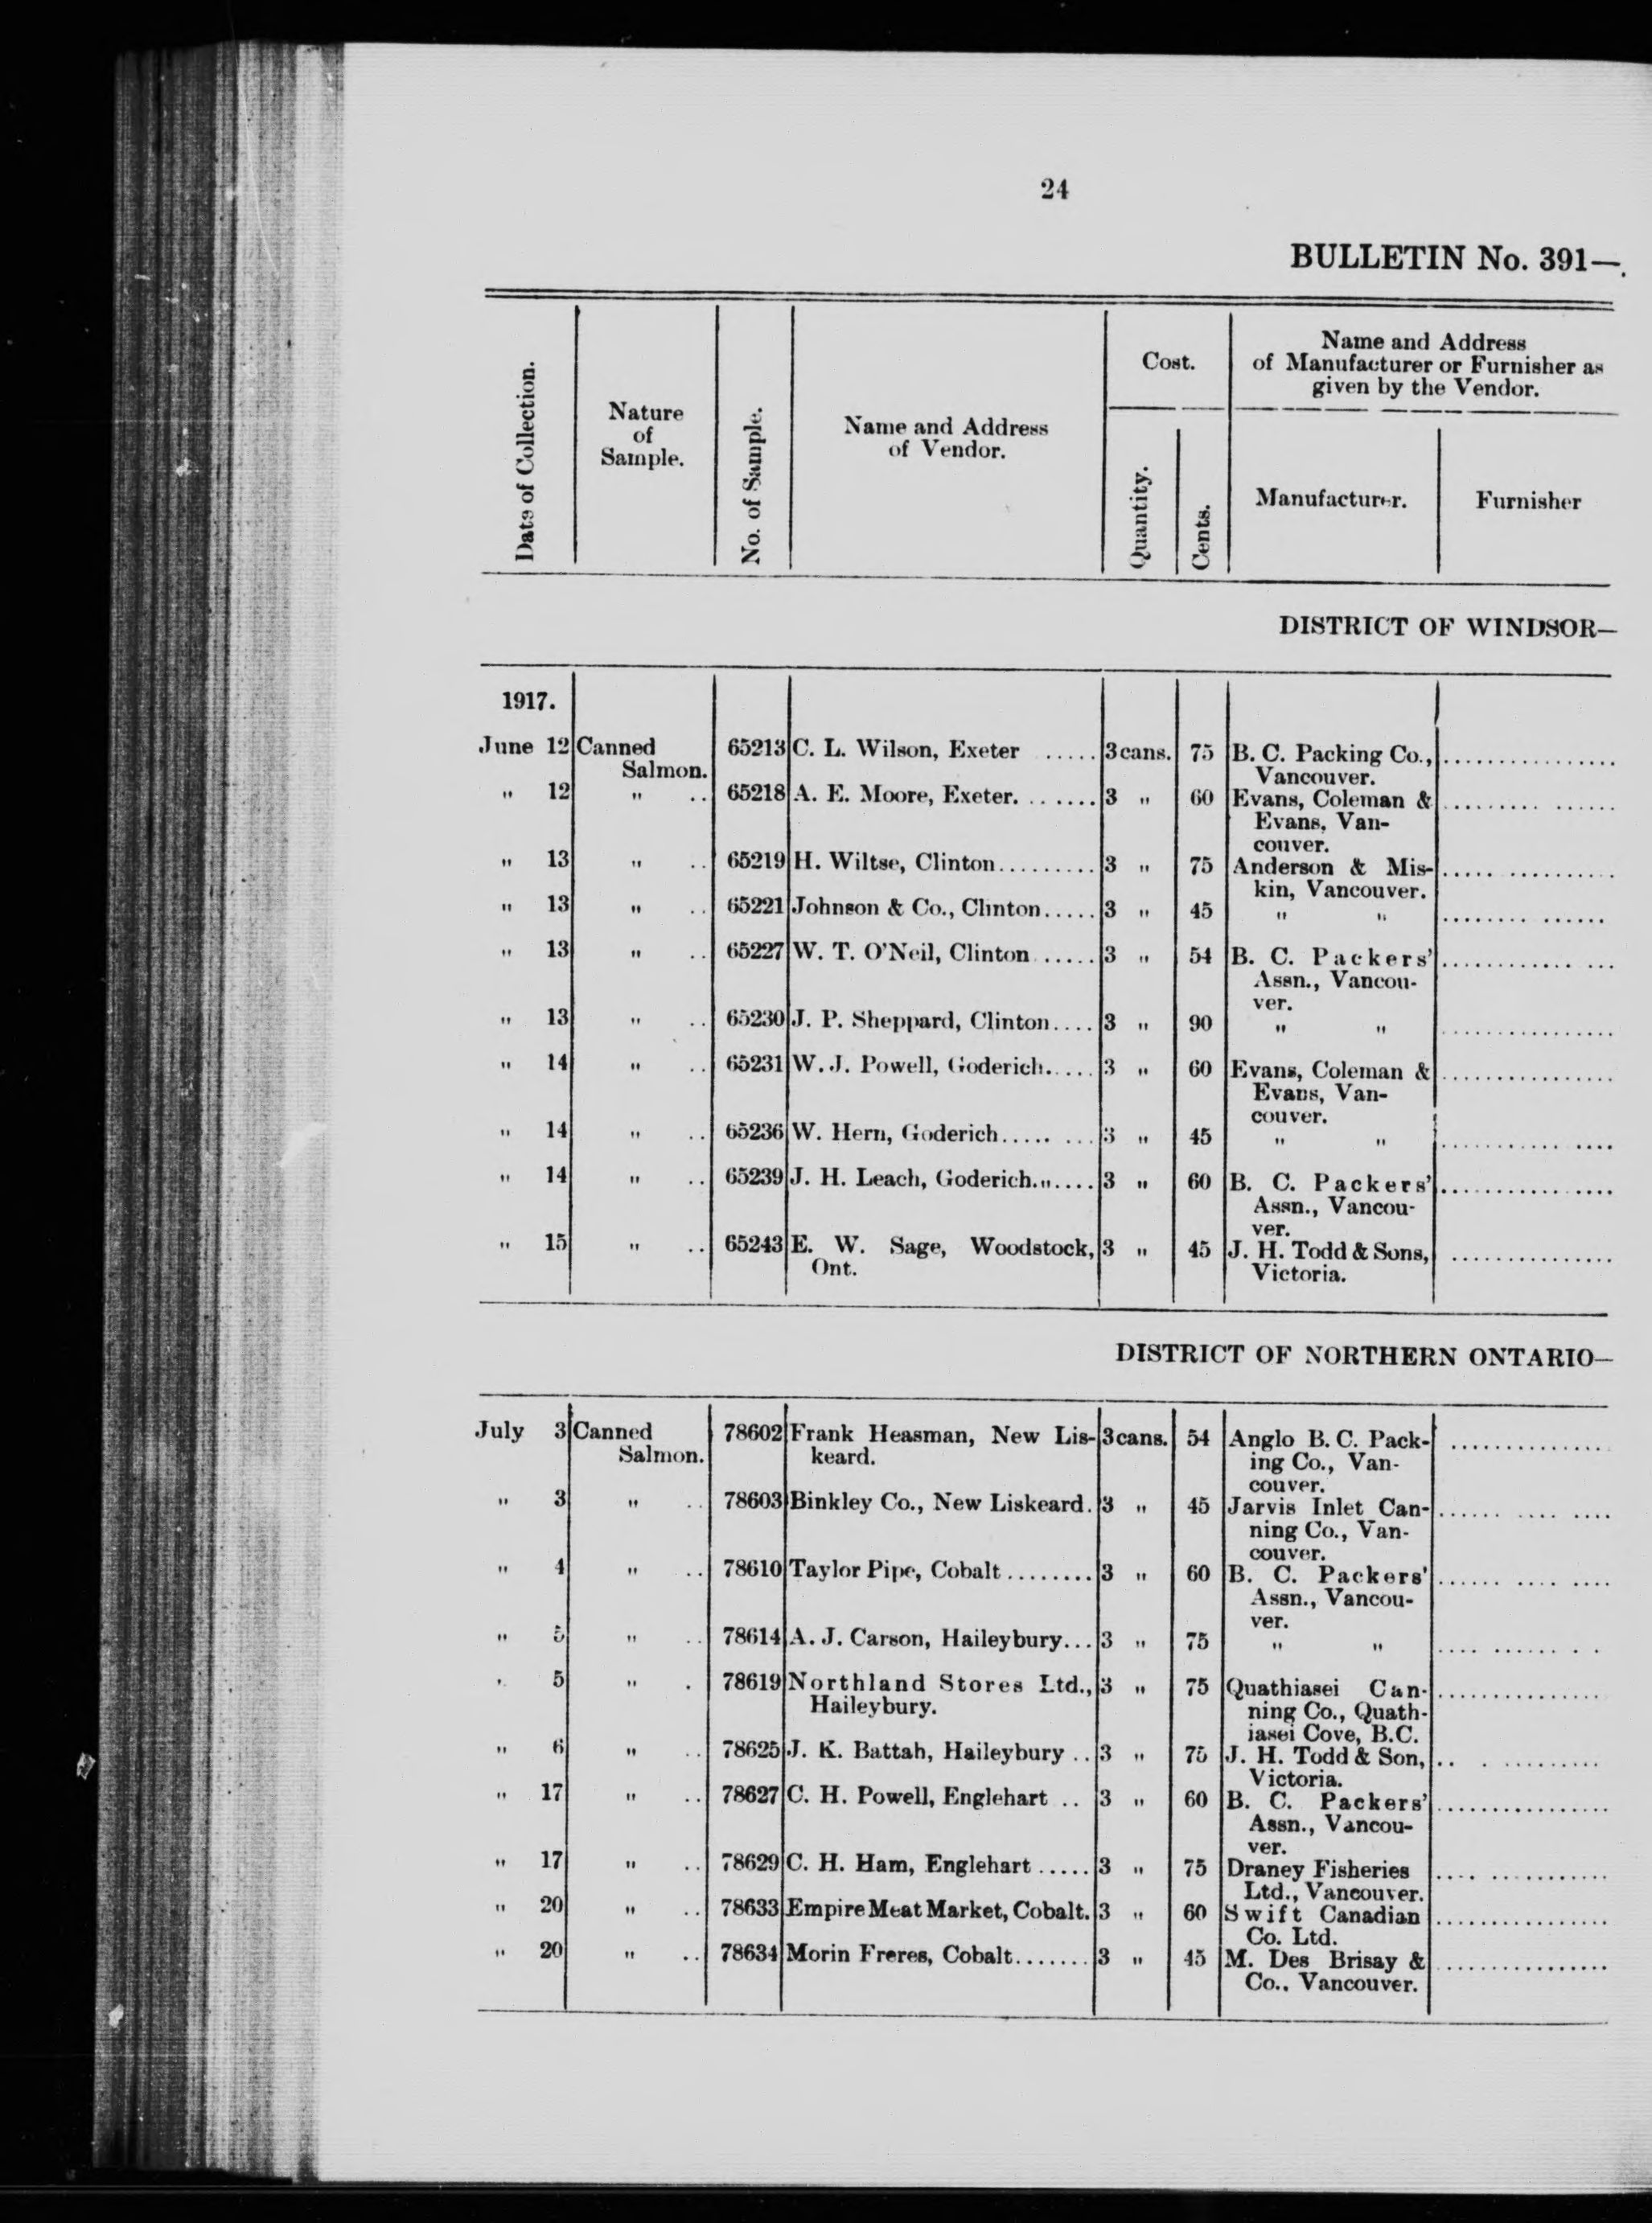 24
BULLETIN No. 391—
Date of Collection.
Nature
of
Sample.
No. of Sample.
Name and Address
of Vendor.
Cost.
Quantity.
Cents.
Name and Address
of Manufacturer or Furnisher as
given by the Vendor.
Manufacturer.
Furnisher
DISTRICT OF WINDSOR—
1917.
June 12 Canned 65213 C. L. Wilson, Exeter ..... 3 cans. 75 B. C. Packing Co., ................
Salmon. Vancouver.
" 12 " .. 65218 A. E. Moore, Exeter. ...... 3 " 60 Evans, Coleman & ................
Evans, Van-
couver.
" 13 " .. 65219 H. Wiltse, Clinton.......... 3 " 75 Anderson & Mis- ................
kin, Vancouver.
" 13 " .. 65221 Johnson & Co., Clinton..... 3 " 45 " " ................
" 13 " .. 65227 W. T. O'Neil, Clinton ...... 3 " 54 B. C. Packers' ................
Assn., Vancou-
ver.
" 13 " .. 65230 J. P. Sheppard, Clinton.... 3 " 90 " " ................
" 14 " .. 65231 W. J. Powell, Goderich..... 3 " 60 Evans, Coleman & ................
Evans, Van-
couver.
" 14 " .. 65236 W. Hern, Goderich..... ... 3 " 45 " " ................
" 14 " .. 65239 J. H. Leach, Goderich...... 3 " 60 B. C. Packers' ................
Assn., Vancou-
ver.
" 15 " .. 65243 E. W. Sage, Woodstock, 3 " 45 J. H. Todd & Sons, ................
Ont. Victoria.
DISTRICT OF NORTHERN ONTARIO—
July 3 Canned 78602 Frank Heasman, New Lis- 3 cans. 54 Anglo B. C. Pack- ...............
Salmon. keard. ing Co., Van-
couver.
" 3 " .. 78603 Binkley Co., New Liskeard. 3 " 45 Jarvis Inlet Can- ................
ning Co., Van-
couver.
" 4 " .. 78610 Taylor Pipe, Cobalt ........ 3 " 60 B. C. Packers' ................
Assn., Vancou-
ver.
" 5 " .. 78614 A. J. Carson, Haileybury... 3 " 75 " " ................
" 5 " . 78619 Northland Stores Ltd., 3 " 75 Quathiasei Can- ................
Haileybury. ning Co., Quath-
iasei Cove, B.C.
" 6 " .. 78625 J. K. Battah, Haileybury .. 3 " 75 J. H. Todd & Son, .. ..........
Victoria.
" 17 " .. 78627 C. H. Powell, Englehart .. 3 " 60 B. C. Packers' ................
Assn., Vancou-
ver.
" 17 " .. 78629 C. H. Ham, Englehart ..... 3 " 75 Draney Fisheries ................
Ltd., Vancouver.
" 20 " .. 78633 Empire Meat Market, Cobalt. 3 " 60 Swift Canadian ................
Co. Ltd.
" 20 " .. 78634 Morin Freres, Cobalt....... 3 " 45 M. Des Brisay & ................
Co., Vancouver.